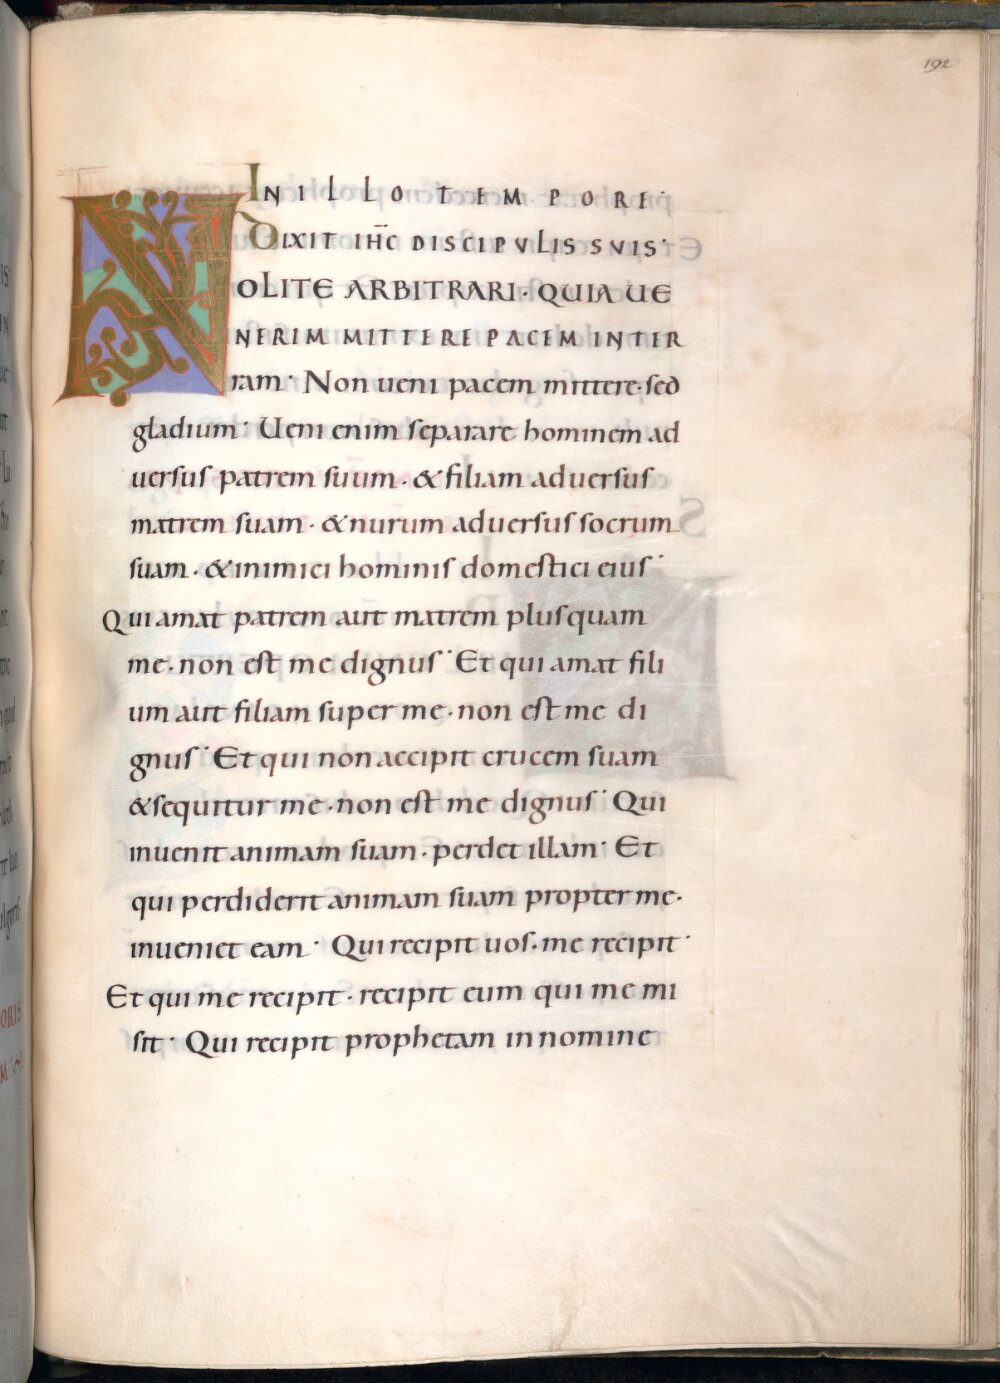 192
IN ILLO TEMPORE·
DIXIT IHC̅ DISCIPVLIS SVIS·
NOLITE ARBITRARI· QUIA UE
NERIM MITTERE PACEM IN TER
ram· Non ueni pacem mittere· sed
gladium· Ueni enim separare hominem ad
uersus patrem suum· & filiam aduersus
matrem suam· & nurum aduersus socrum
suam· & inimici hominis domestici eius·
Qui amat patrem aut matrem plus quam
me· non est me dignus· Et qui amat fili
um aut filiam super me· non est me di
gnus· Et qui non accipit crucem suam
& sequitur me· non est me dignus· Qui
inuenit animam suam· perdet illam· Et
qui perdiderit animam suam propter me·
inueniet eam· Qui recipit uos· me recipit·
Et qui me recipit· recipit eum qui me mi
sit· Qui recipit prophetam in nomine